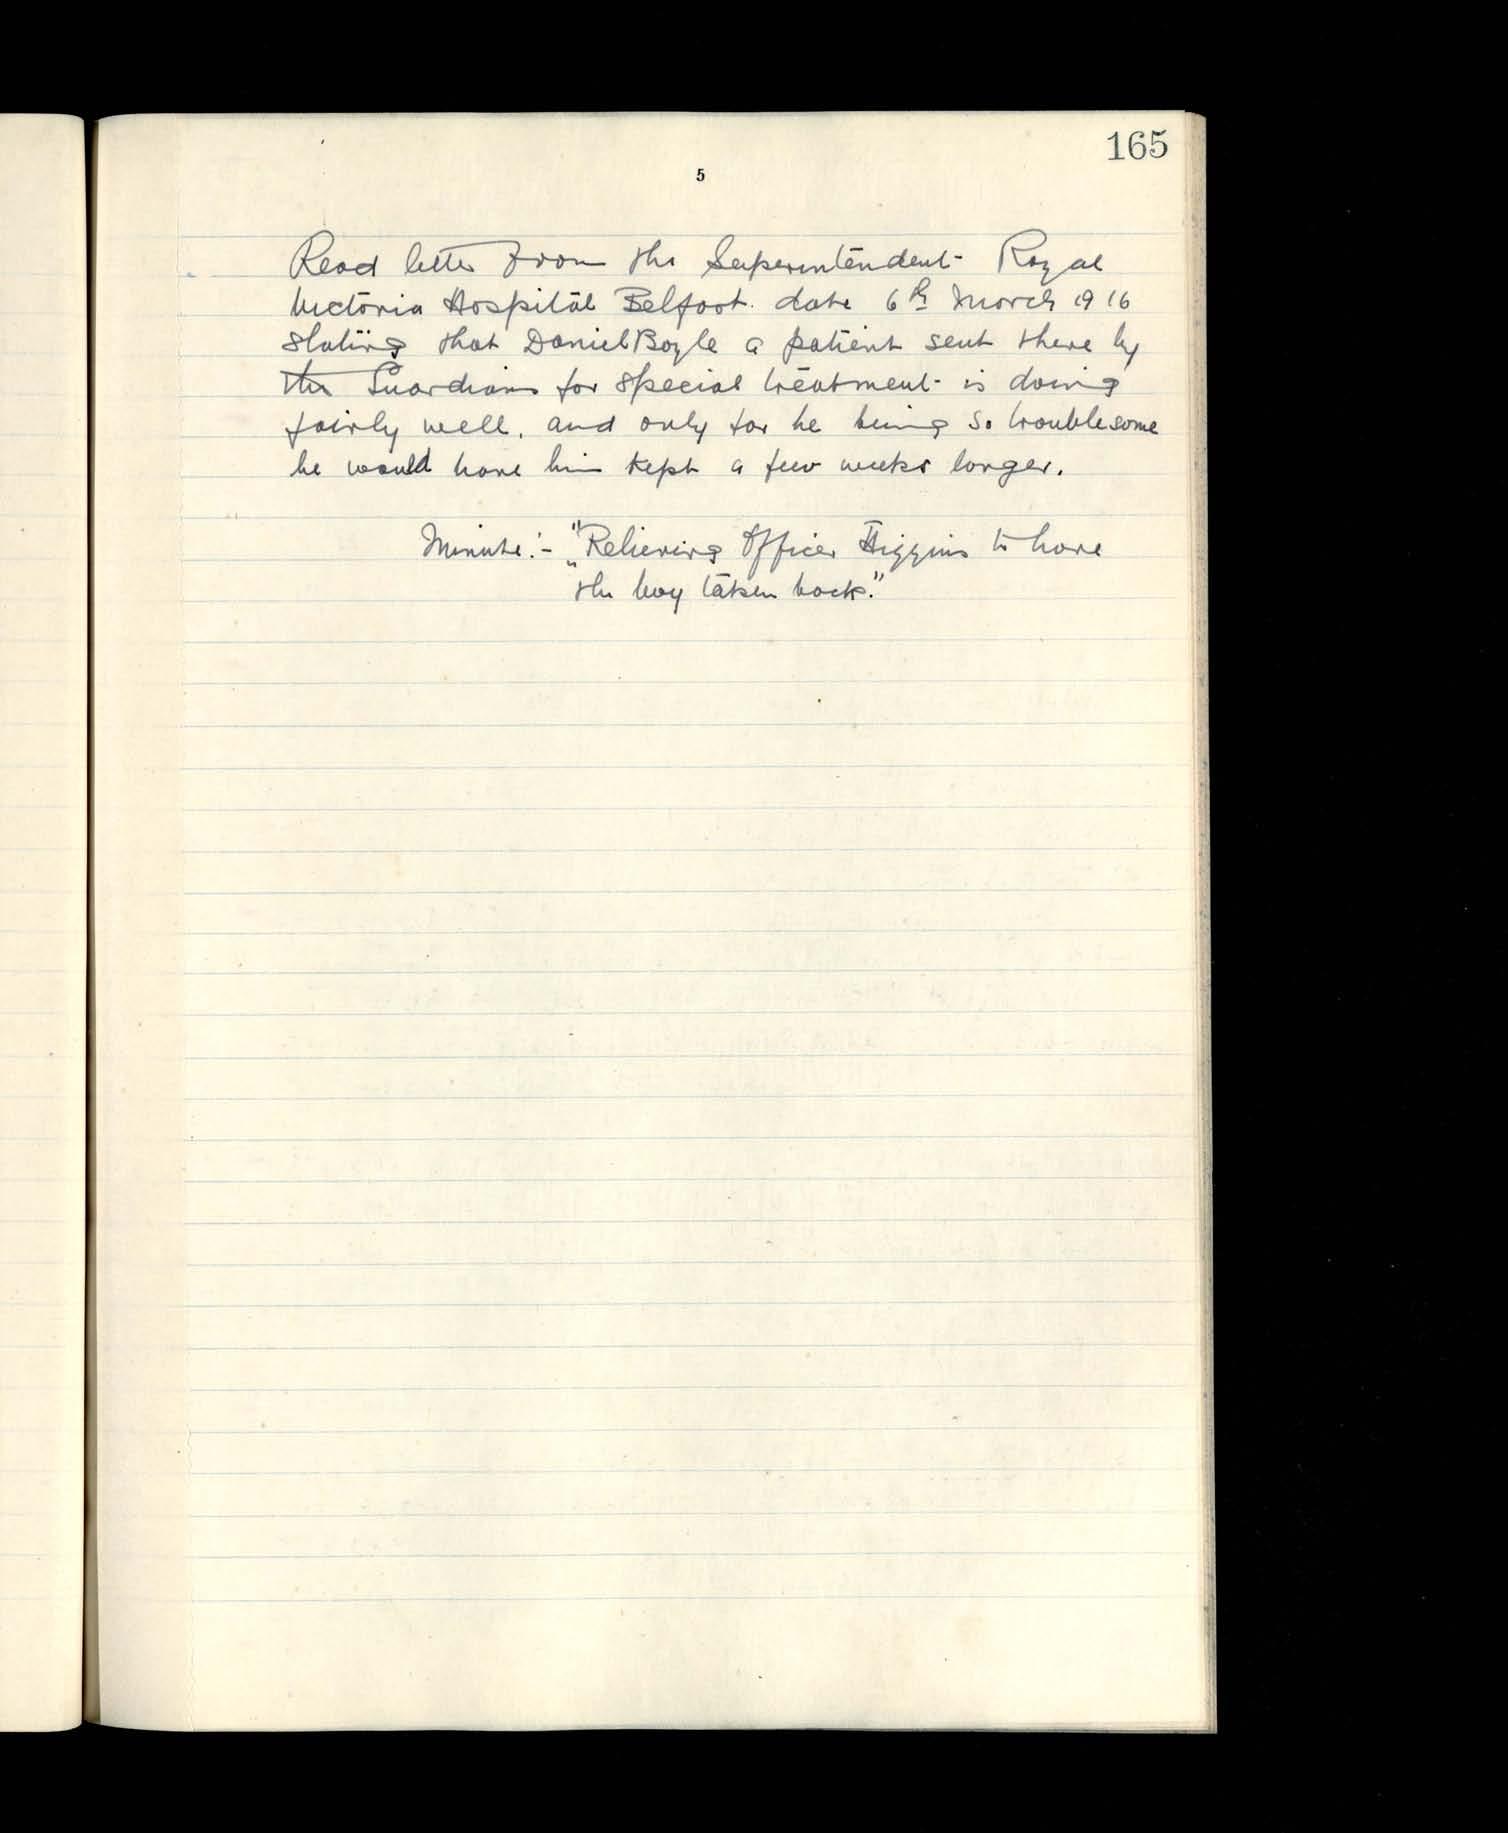 165
5
Read letter from the Superintendent Royal
Victoria Hospital Belfast. date 6th March 1916
stating that Daniel Boyle a patient sent there by
the Guardians for special treatment is doing
fairly well, and only for he being so troublesome
he would have him kept a few weeks longer.
Minute:- "Relieving Officer Higgins to have
"the boy taken back."